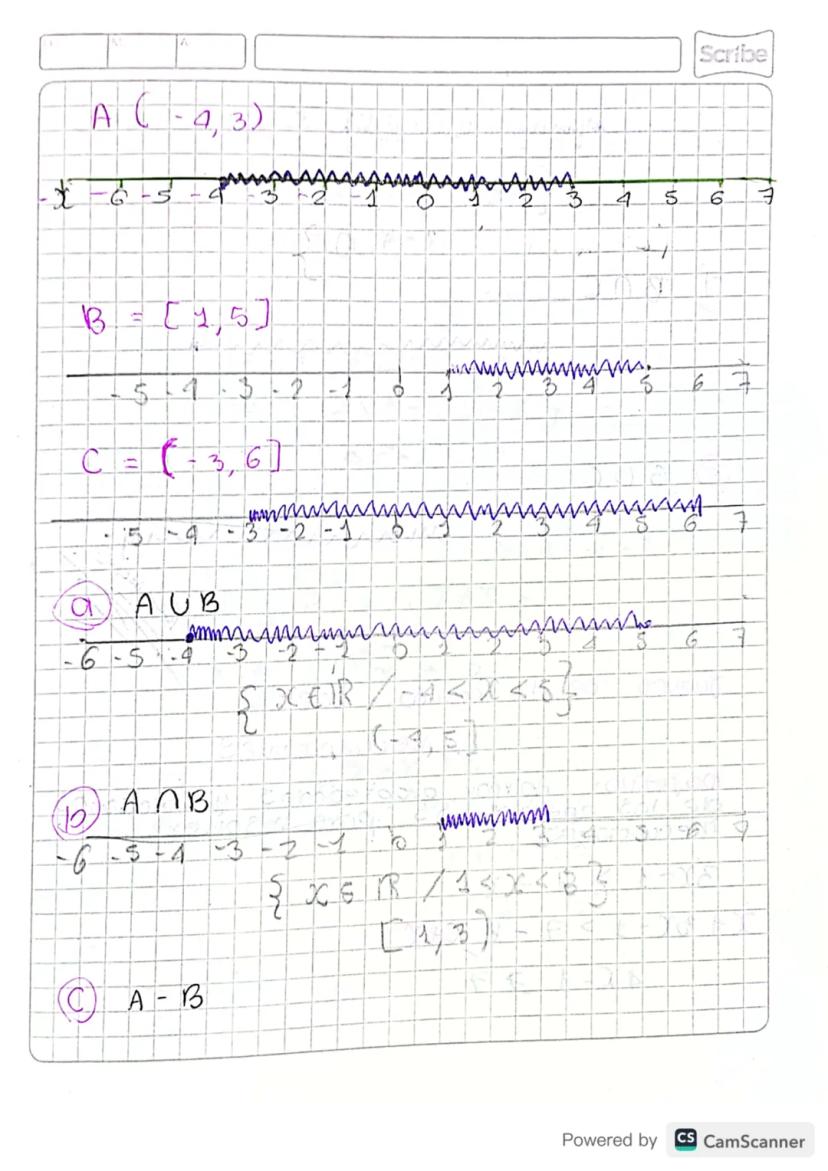 Scribe
A ( - 4, 3)
-x -6 -5 -4 -3 -2 -1 0 1 2 3 4 5 6 7
B = [ 1, 5 ]
-5 -4 -3 -2 -1 0 1 2 3 4 5 6 7
C = ( - 3, 6 ]
-5 -4 -3 -2 -1 0 1 2 3 4 5 6 7
a A ∪ B
-6 -5 -4 -3 -2 -1 0 1 2 3 4 5 6 7
{ x ∈ ℝ / -4 < x < 5 }
(-4, 5]
b A ∩ B
-6 -5 -4 -3 -2 -1 0 1 2 3 4 5 6 7
{ x ∈ ℝ / 1 < x < 3 }
[ 1, 3 )
C A - B
Powered by CS CamScanner